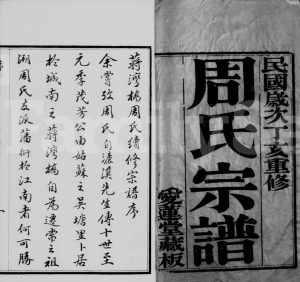 民國歲次丁亥重修
周氏宗譜
愛蓮堂藏板
蔣灣橋周氏續修宗譜序
余嘗攷周氏自濂溪先生傳十世至
元季茂芳公由姑蘇之吳塘里卜居
於城南之蔣灣橋自為遷常之祖
溯周氏支派蕃衍於江南者何可勝